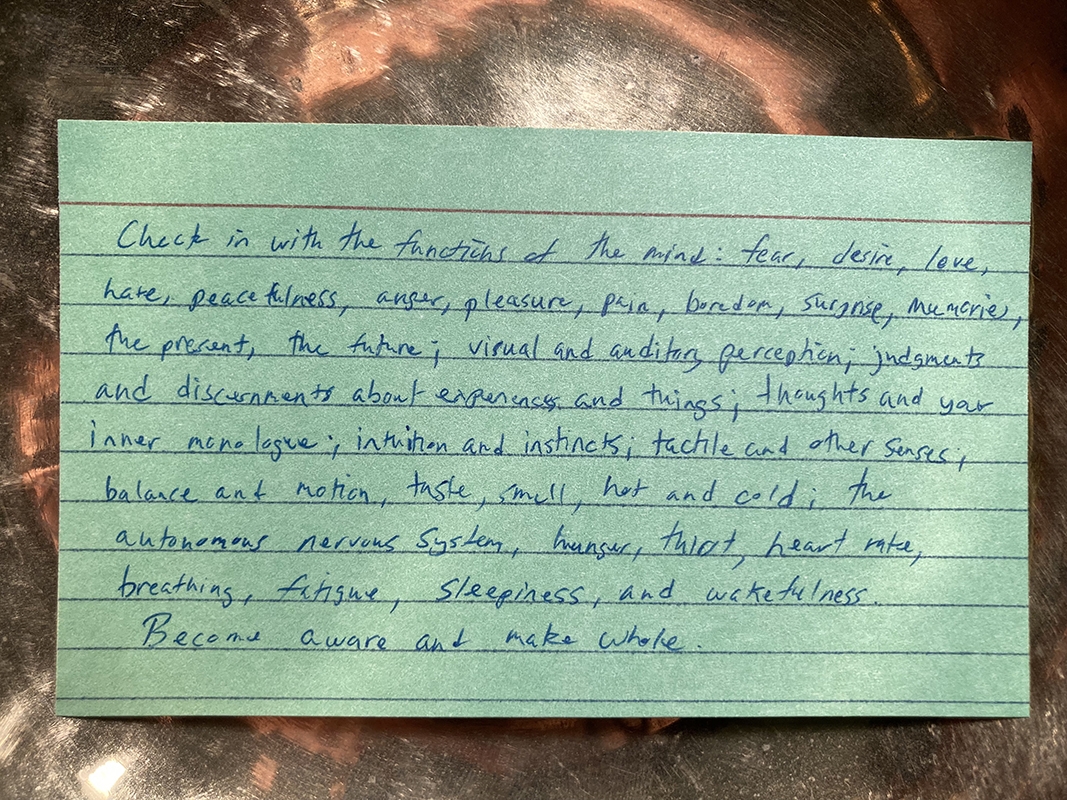 Check in with the functions of the mind: fear, desire, love,
hate, peacefulness, anger, pleasure, pain, boredom, surprise, memories,
the present, the future; visual and auditory perception; judgments
and discernments about experiences and things; thoughts and your
inner monologue; intuition and instincts; tactile and other senses,
balance and motion, taste, smell, hot and cold; the
autonomous nervous system, hunger, thirst, heart rate,
breathing, fatigue, sleepiness, and wakefulness.
Become aware and make whole.